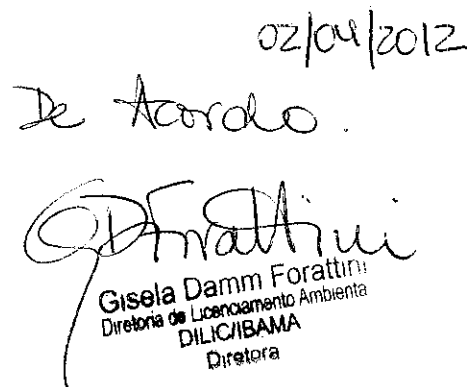 02/04/2012
De Acordo.
GDForattini
Gisela Damm Forattini
Diretoria de Licenciamento Ambienta
DILIC/IBAMA
Diretora